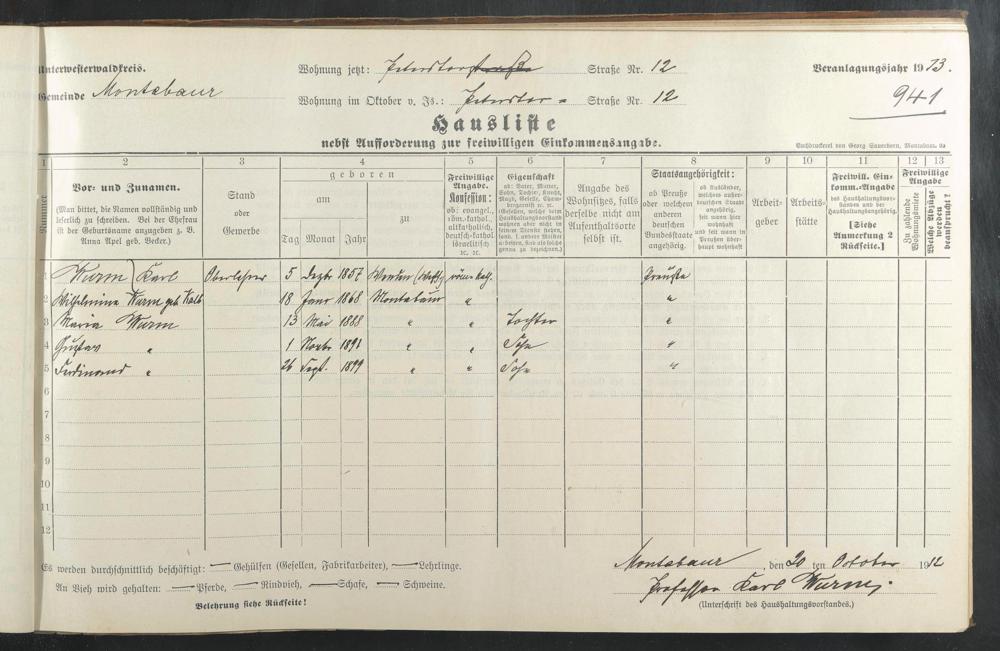 Unterwesterwaldkreis.
Wohnung jetzt: Peterstorstraße Straße Nr. 12
Veranlagungsjahr 1913.
Gemeinde Montabaur
Wohnung im Oktober v. Js.: Peterstor = Straße Nr. 12
941
Hausliste
nebst Aufforderung zur freiwilligen Einkommensangabe.
Buchdruckerei von Georg Sauerborn, Montabaur.
1 2 3 4 5 6 7 8 9 10 11 12 13
Nummer
Vor- und Zunamen.
(Man bittet, die Namen vollständig und
leserlich zu schreiben. Bei der Ehefrau
ist der Geburtsname anzugeben z. B.
Anna Apel geb. Becker.)
Stand
oder
Gewerbe
geboren
am
Tag Monat Jahr
zu
Freiwillige
Angabe.
Konfession:
ob: evangel.,
röm.-kathol.,
altkatholisch,
deutsch-kathol.
israelitisch
rc. rc.
Eigenschaft
ob: Vater, Mutter,
Sohn, Tochter, Knecht,
Magd, Geselle, Chambregarnist rc. rc.
Angabe des
Wohnsitzes, falls
derselbe nicht am
Aufenthaltsorte
selbst ist.
Staatsangehörigkeit:
ob Preuße
oder welchem
anderen
deutschen
Bundesstaate
angehörig.
ob Ausländer,
welchem außerdeutschen Staate
angehörig,
seit wann hier
wohnhaft
und seit wann in
Preußen überhaupt wohnhaft
Arbeitgeber
Arbeitsstätte
Freiwill. Einkomm.-Angabe
des Haushaltungsvorstandes und der
Haushaltungsangehörig.
[Siehe
Anmerkung 2
Rückseite.]
Freiwillige
Angabe
1 Wurm, Karl Oberlehrer 5 Dezbr 1857 röm. kath. Preuße
2 Wilhelmina Wurm geb. Kalb 18 Janr 1868 Montabaur " "
3 Maria Wurm 13 Mai 1888 " " Tochter "
4 Gustav " 1 Novbr 1891 " " Sohn "
5 Ferdinand " 26 Sept. 1899 " " Sohn "
6
7
8
9
10
11
12
Es werden durchschnittlich beschäftigt: — Gehülfen (Gesellen, Fabrikarbeiter), — Lehrlinge.
An Vieh wird gehalten: — Pferde, — Rindvieh, — Schafe, — Schweine.
Belehrung siehe Rückseite!
Montabaur, den 20 ten Oktober 1912
Professor Karl Wurm.
(Unterschrift des Haushaltungsvorstandes.)